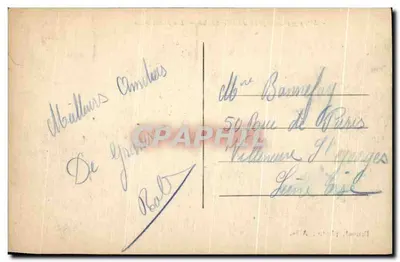 Meilleurs Amitiés
De
Mme Bonnefoy
50 Rue de Paris
Villeneuve St Georges
Seine Oise
CPAPHIL